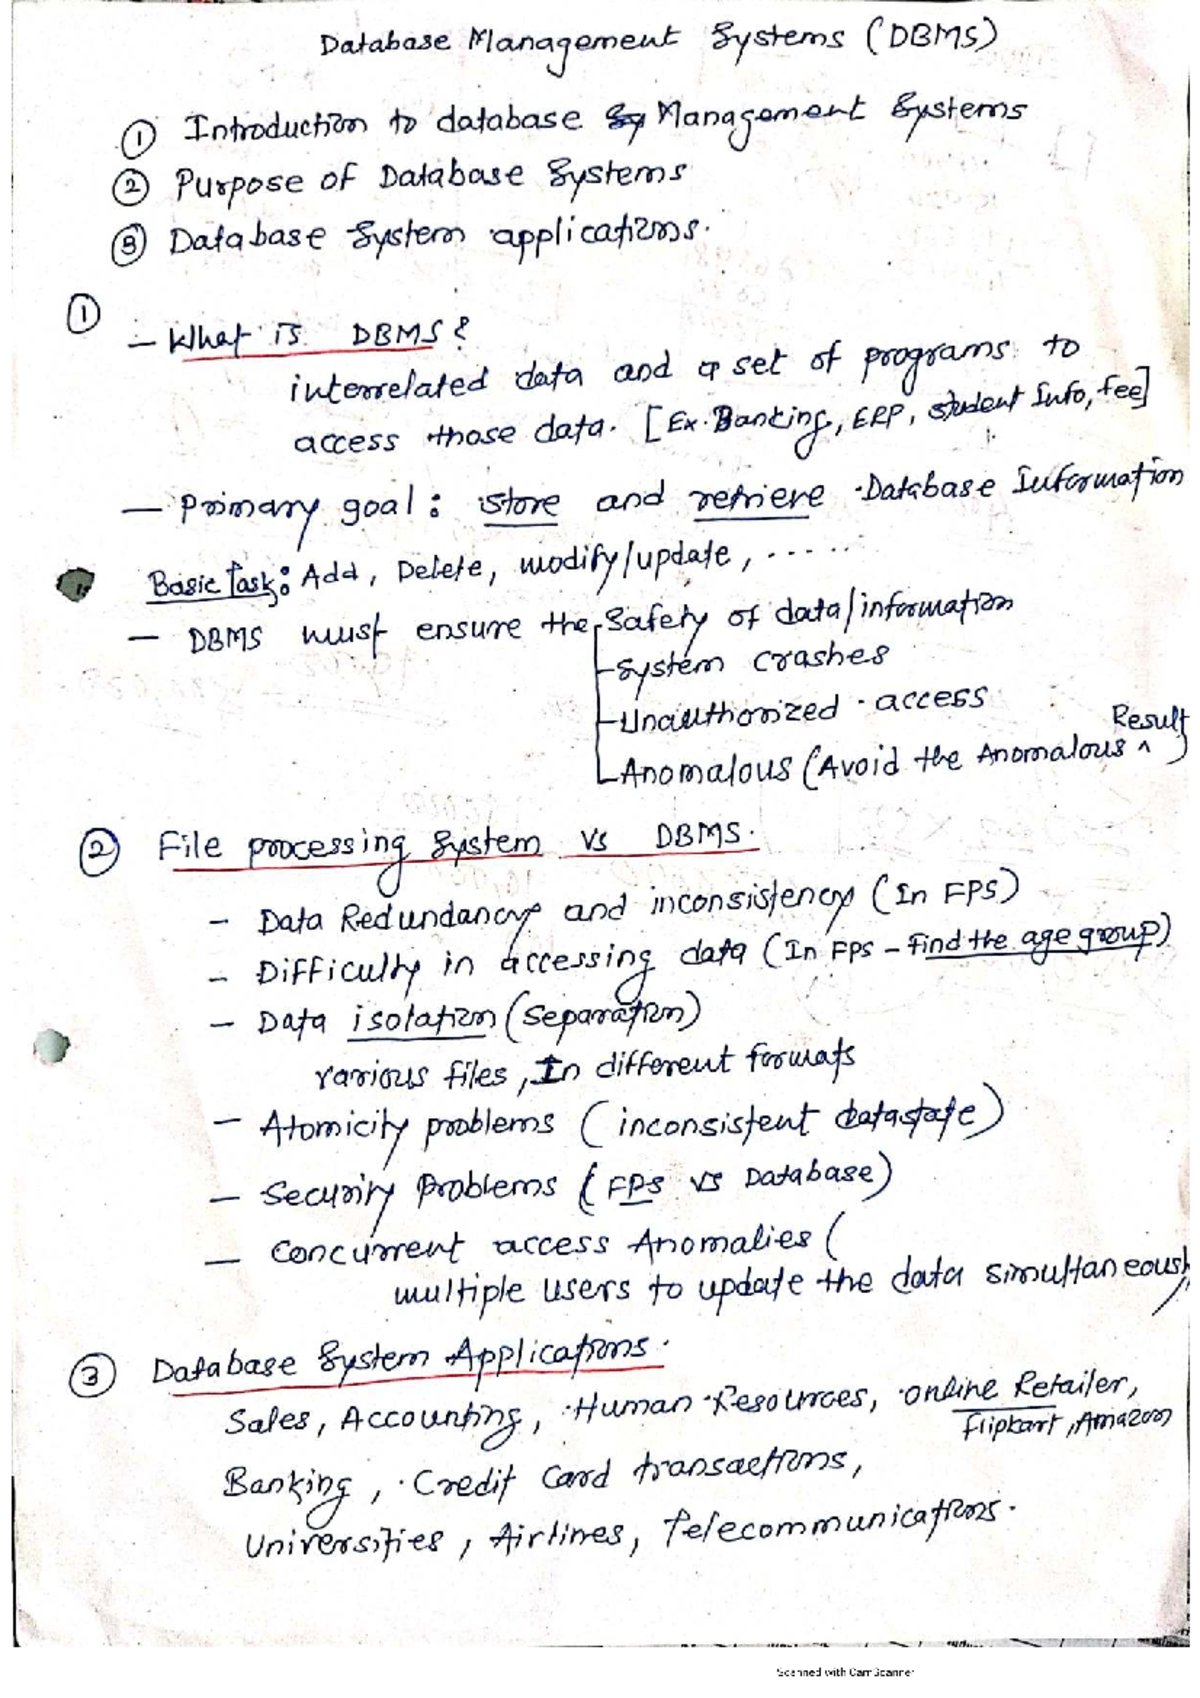 Database Management Systems (DBMS)
① Introduction to database Management Systems
② Purpose of Database Systems
③ Database System applications.
①
- What is DBMS?
interrelated data and a set of programs to
access those data. [Ex. Banking, ERP, student Info, fee]
- Primary goal : store and retrieve Database Information
Basic Task: Add, Delete, modify/update, ......
- DBMS must ensure the Safety of data/information
- System crashes
- Unauthorized access
- Anomalous (Avoid the Anomalous ^ Result)
② File processing System vs DBMS.
- Data Redundancy and inconsistency (In FPS)
- Difficulty in accessing data (In FPS - Find the age group)
- Data isolation (Separation)
various files, In different formats
- Atomicity problems (inconsistent datastate)
- Security Problems (FPS vs Database)
- Concurrent access Anomalies (
multiple users to update the data simultaneously
③ Database System Applications.
Sales, Accounting, Human Resources, online Retailer,
flipkart, Amazon
Banking, Credit Card transactions,
Universities, Airlines, Telecommunications.
Scanned with CamScanner